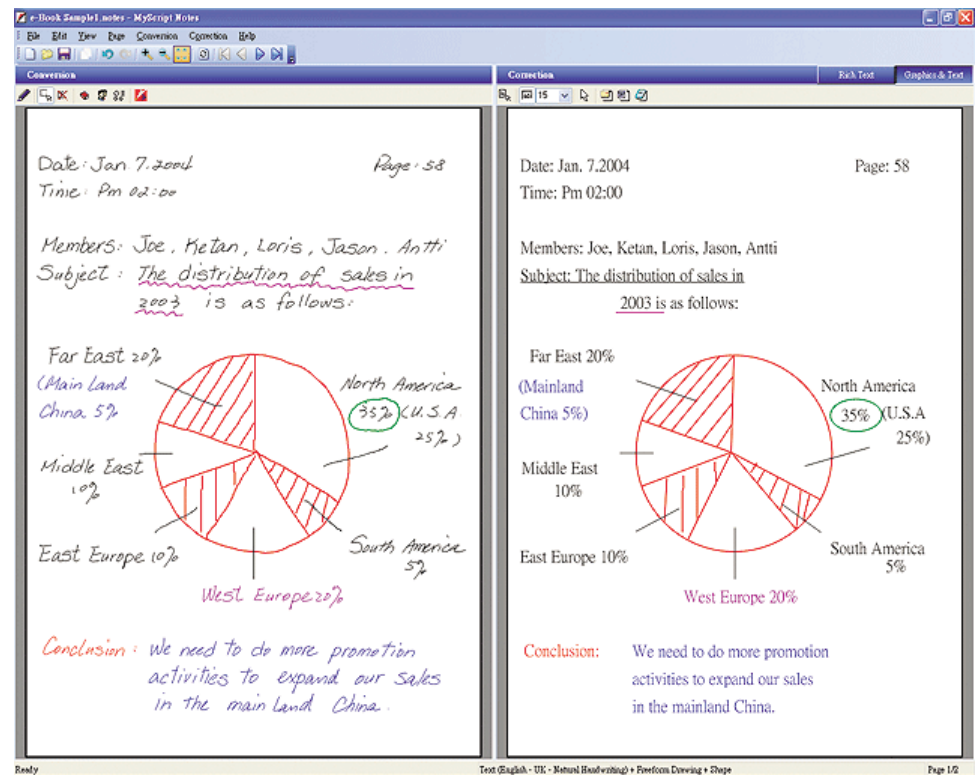 e-Book Sample1.notes - MyScript Notes
File Edit View Page Conversion Correction Help
Conversion
Date: Jan 7.2004 Page: 58
Time: Pm 02:00
Members: Joe, Ketan, Loris, Jason. Antti
Subject: The distribution of sales in
2003 is as follows:
Far East 20%
(Main Land
China 5%
North America
35% (U.S.A
25%)
Middle East
10%
East Europe 10%
South America
5%
West Europe 20%
Conclusion: We need to do more promotion
activities to expand our sales
in the main Land China.
Correction Rich Text Graphics & Text
15
Date: Jan. 7.2004 Page: 58
Time: Pm 02:00
Members: Joe, Ketan, Loris, Jason, Antti
Subject: The distribution of sales in
2003 is as follows:
Far East 20%
(Mainland
China 5%)
North America
35% (U.S.A
25%)
Middle East
10%
East Europe 10%
South America
5%
West Europe 20%
Conclusion: We need to do more promotion
activities to expand our sales
in the mainland China.
Ready Text (English - UK - Natural Handwriting) + Freeform Drawing + Shape Page 1/2